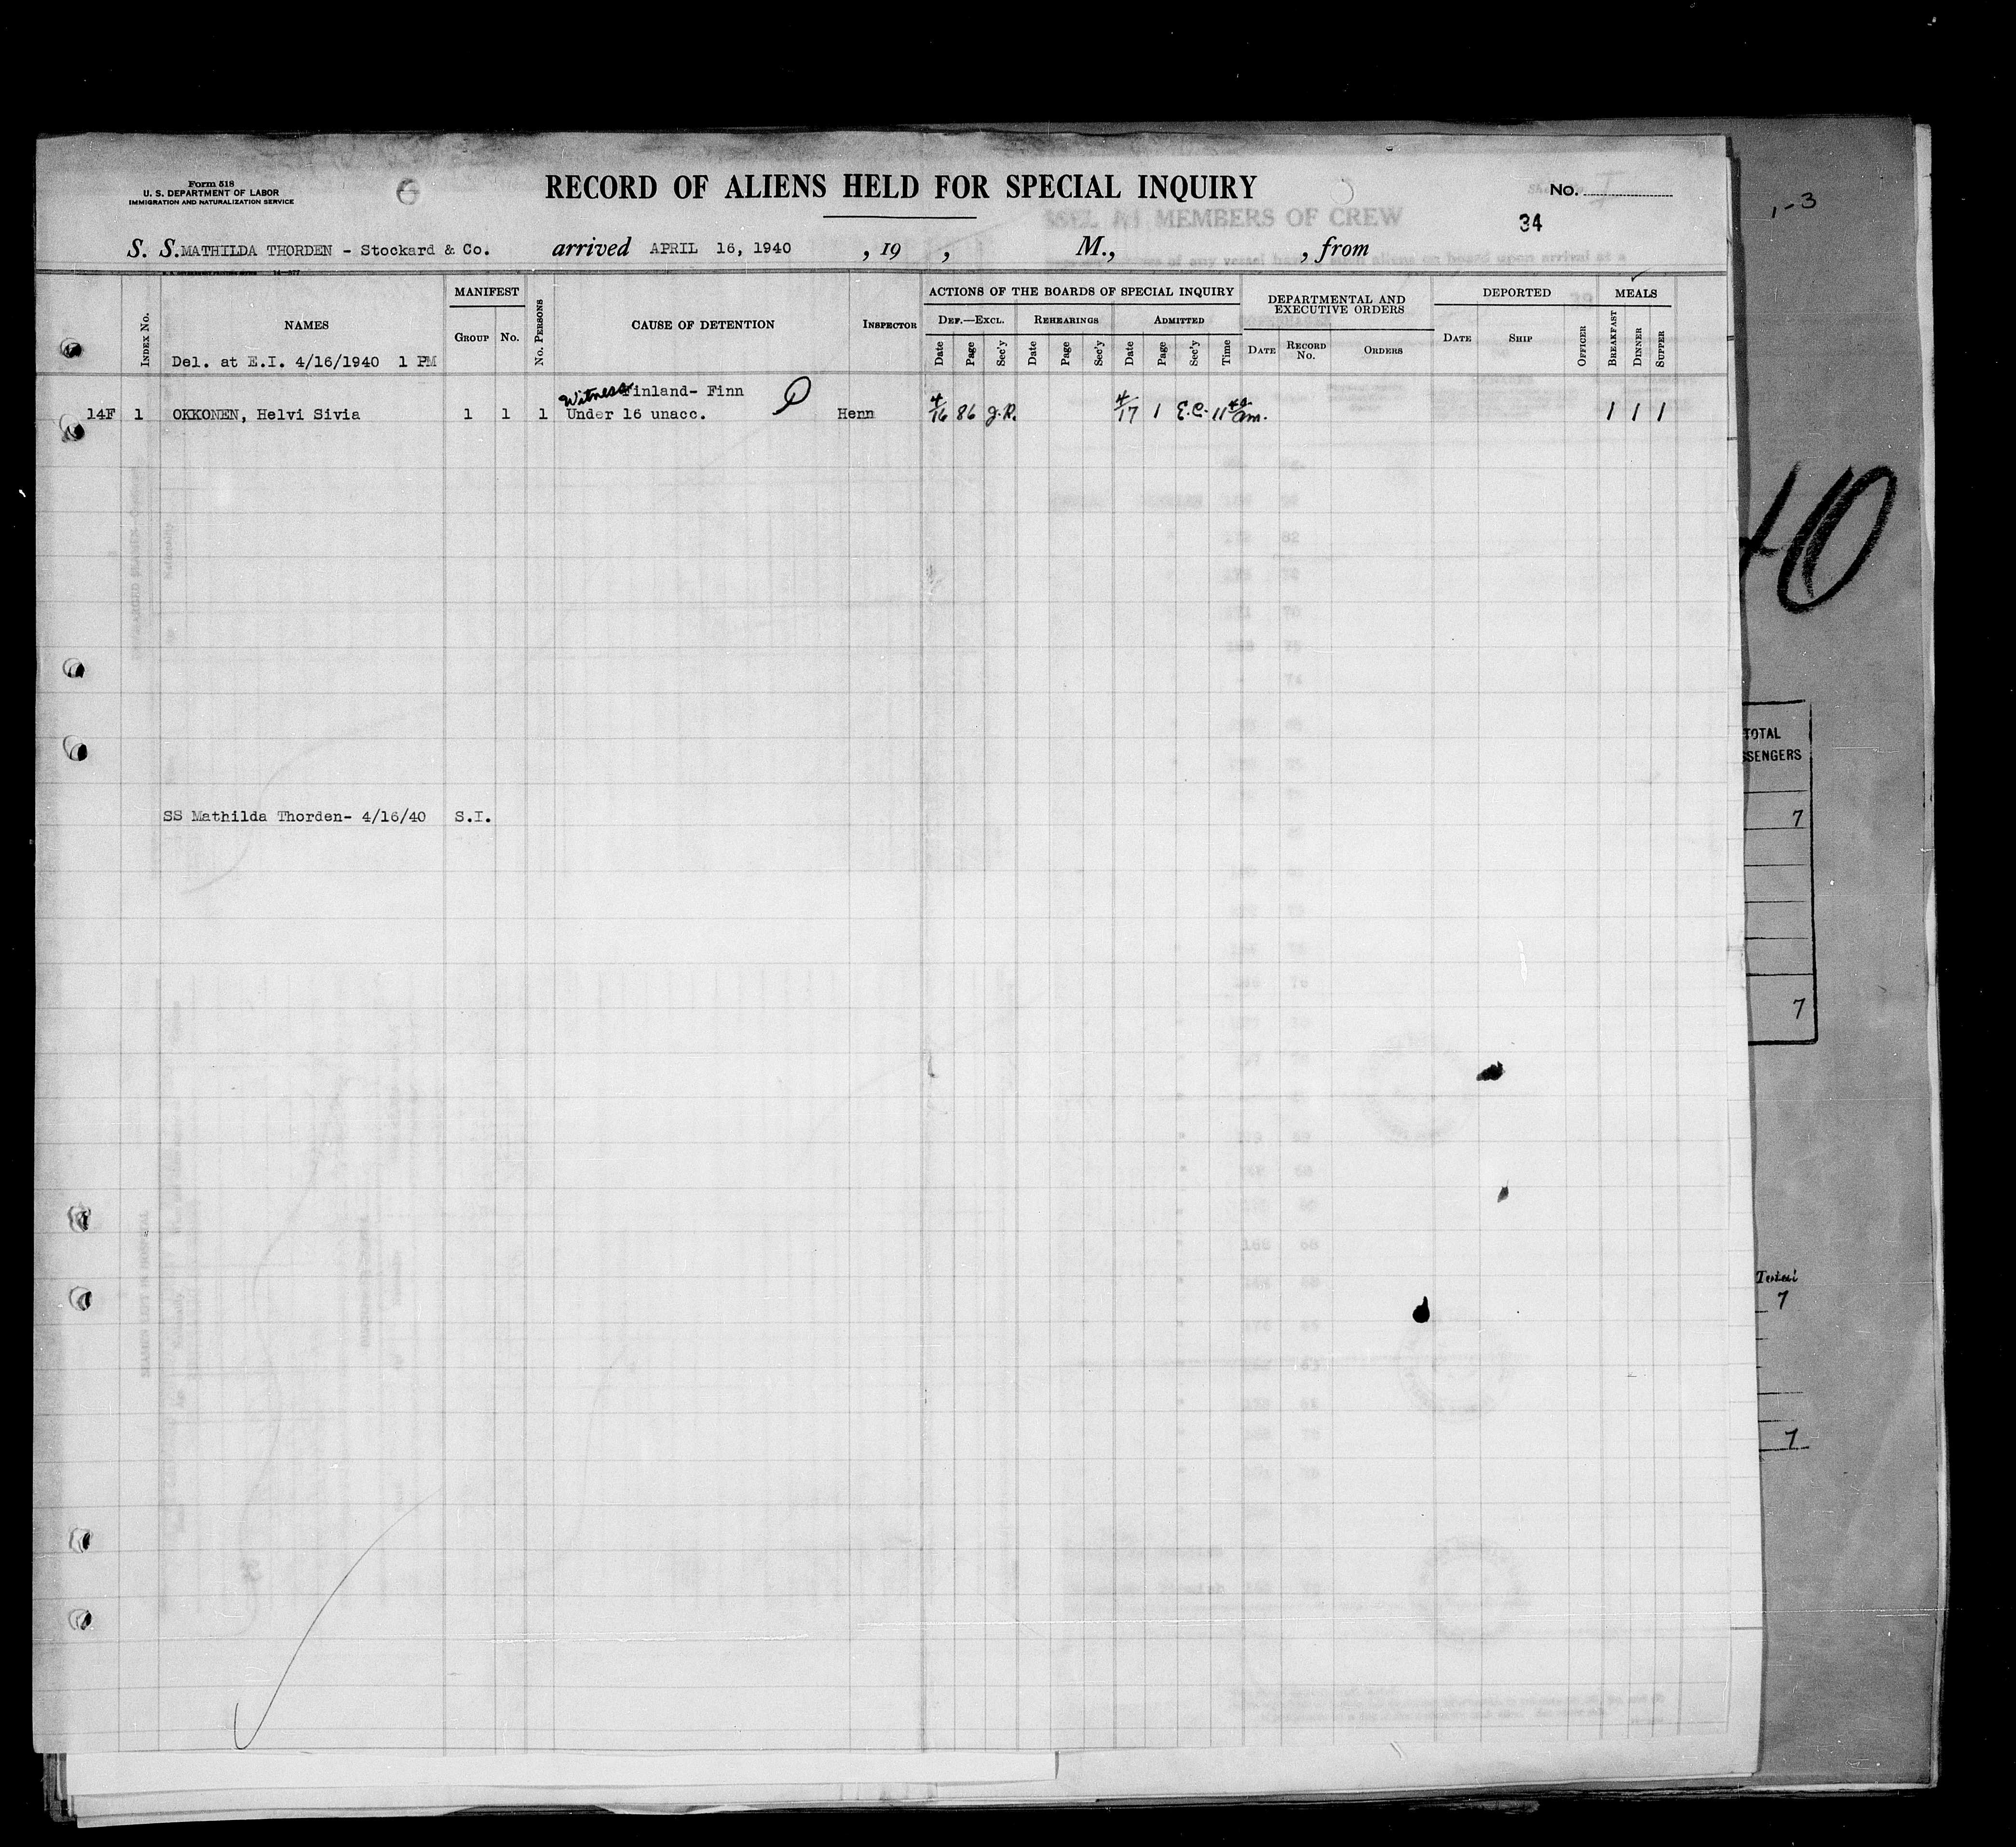 Form 518
U. S. DEPARTMENT OF LABOR
IMMIGRATION AND NATURALIZATION SERVICE
RECORD OF ALIENS HELD FOR SPECIAL INQUIRY
No.
34
1-3
MEMBERS OF CREW
S. S. MATHILDA THORDEN - Stockard & Co. arrived APRIL 16, 1940 , 19 , M., , from
of any vessel having such aliens on board upon arrival at a
INDEX No.
NAMES
Del. at E.I. 4/16/1940 1 PM
MANIFEST
GROUP No.
No. PERSONS
CAUSE OF DETENTION
INSPECTOR
ACTIONS OF THE BOARDS OF SPECIAL INQUIRY
DEF.—EXCL. REHEARINGS ADMITTED
Date Page Sec'y Date Page Sec'y Date Page Sec'y Time
DEPARTMENTAL AND
EXECUTIVE ORDERS
DATE RECORD No. ORDERS
DEPORTED
DATE SHIP OFFICER
MEALS
BREAKFAST DINNER SUPPER
Witness Finland- Finn
14F 1 OKKONEN, Helvi Sivia 1 1 1 Under 16 unacc. Henn 4/16 86 J.R. 4/17 1 E.C. 11 40 am. 1 1 1
40
SS Mathilda Thorden- 4/16/40 S.I.
TOTAL
SSENGERS
7
7
Total
7
7